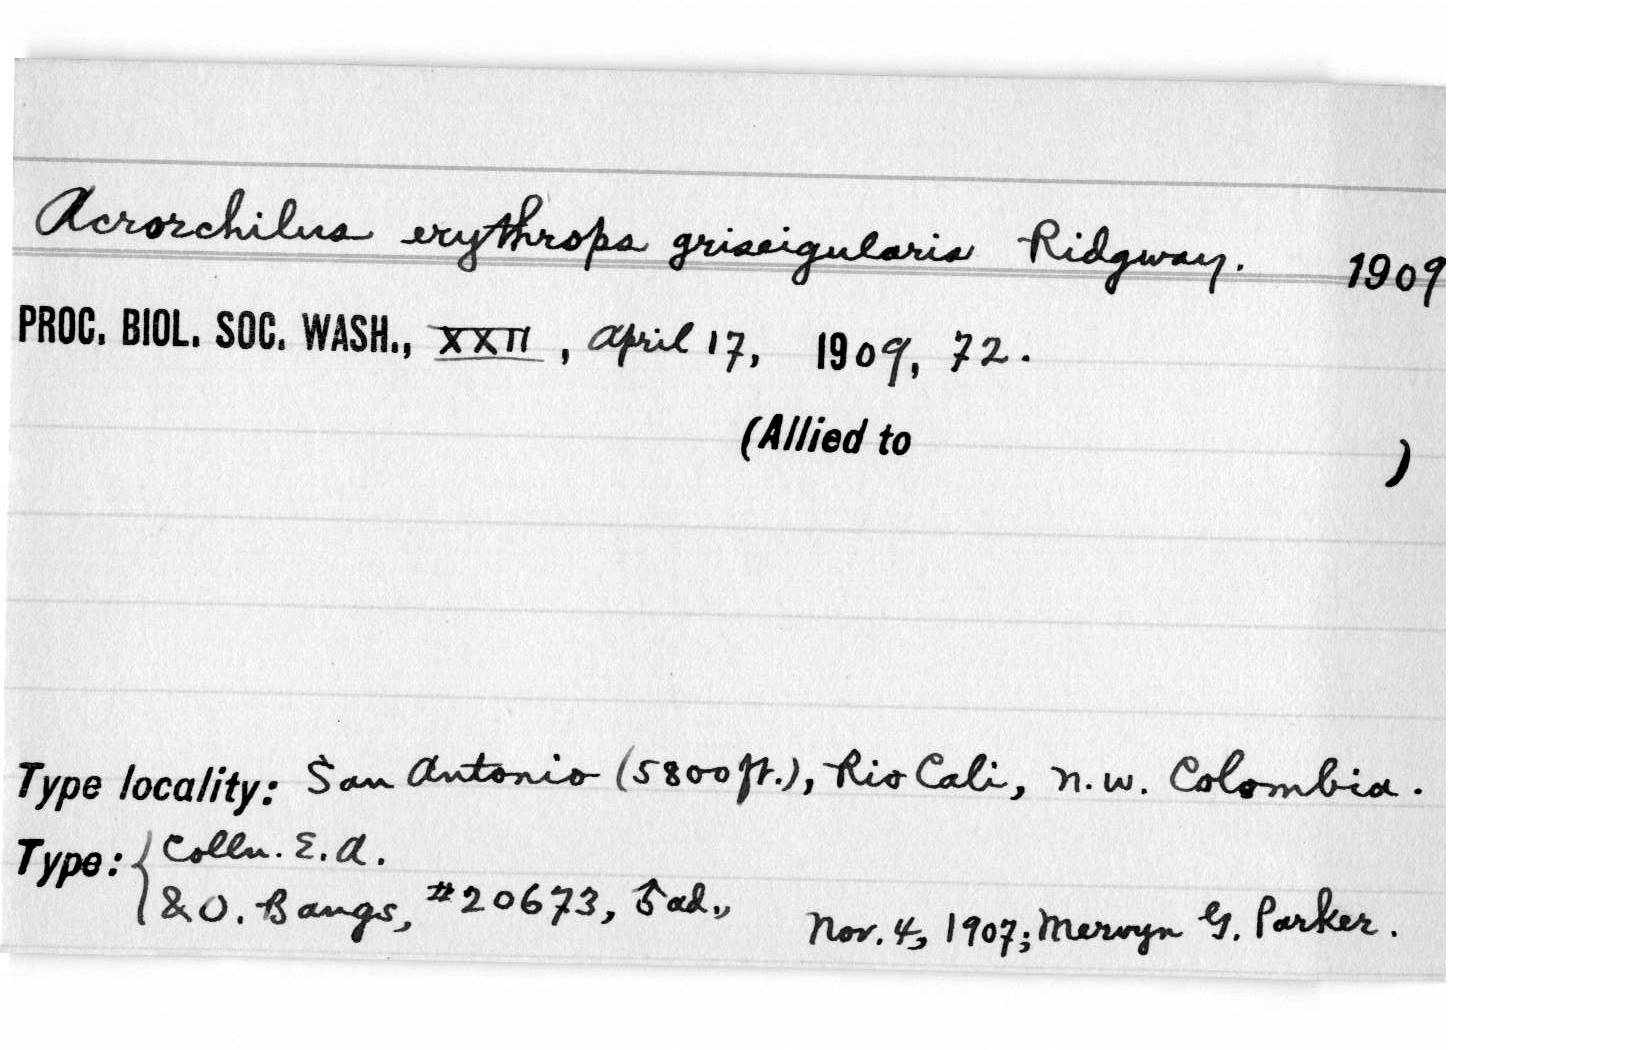 Acrorchilus erythrops griseigularis Ridgway. 1909
PROC. BIOL. SOC. WASH., XXII, April 17, 1909, 72.
(Allied to )
Type locality: San Antonio (5800 ft.), Rio Cali, n.w. Colombia.
Type: { Colln. E.A.
& O. Bangs, #20673, ♂ ad., Nov. 4, 1907; Mervyn G. Parker.